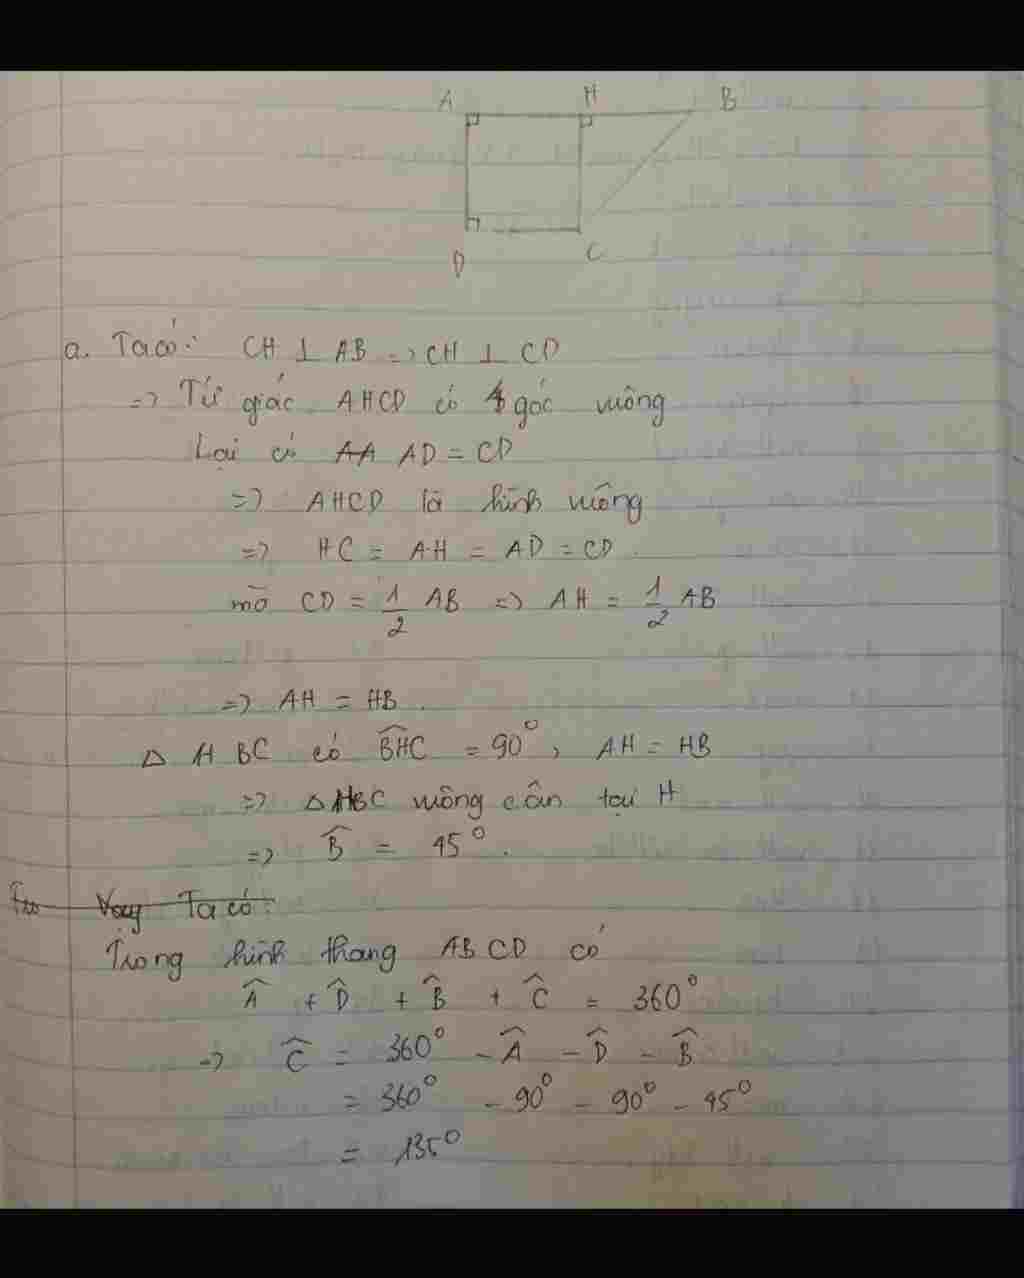 A H B
D C
a. Ta có: CH ⊥ AB => CH ⊥ CD
=> Tứ giác AHCD có 4 góc vuông
Lại có AD = CD
=> AHCD là hình vuông
=> HC = AH = AD = CD.
mà CD = 1/2 AB => AH = 1/2 AB
=> AH = HB.
Δ HBC có \widehat{BHC} = 90°, AH = HB
=> Δ HBC vuông cân tại H
=> \widehat{B} = 45°.
Vậy Ta có:
Trong hình thang ABCD có
\widehat{A} + \widehat{D} + \widehat{B} + \widehat{C} = 360°
=> \widehat{C} = 360° - \widehat{A} - \widehat{D} - \widehat{B}
= 360° - 90° - 90° - 45°
= 135°